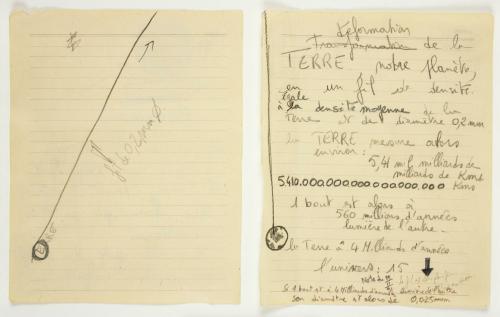 fil de 0,2mm ø
TERRE
Deformation
Transformation de la
TERRE notre planète,
en un fil de densité
égale
à la densité moyenne de la
Terre et de diamètre 0,2mm
la TERRE mesure alors
environ :
5,41 mil milliards de
milliards de Kms
5.410.000.000.000.000.000.000 Kms
1 bout est alors à
560 millions d'années
lumière de l'autre.
la Terre a 4 Milliards d'années
l'univers : 15
Si 1 bout est à 4 Milliards d'années lumière de l'autre
son diamètre est alors de 0,025mm